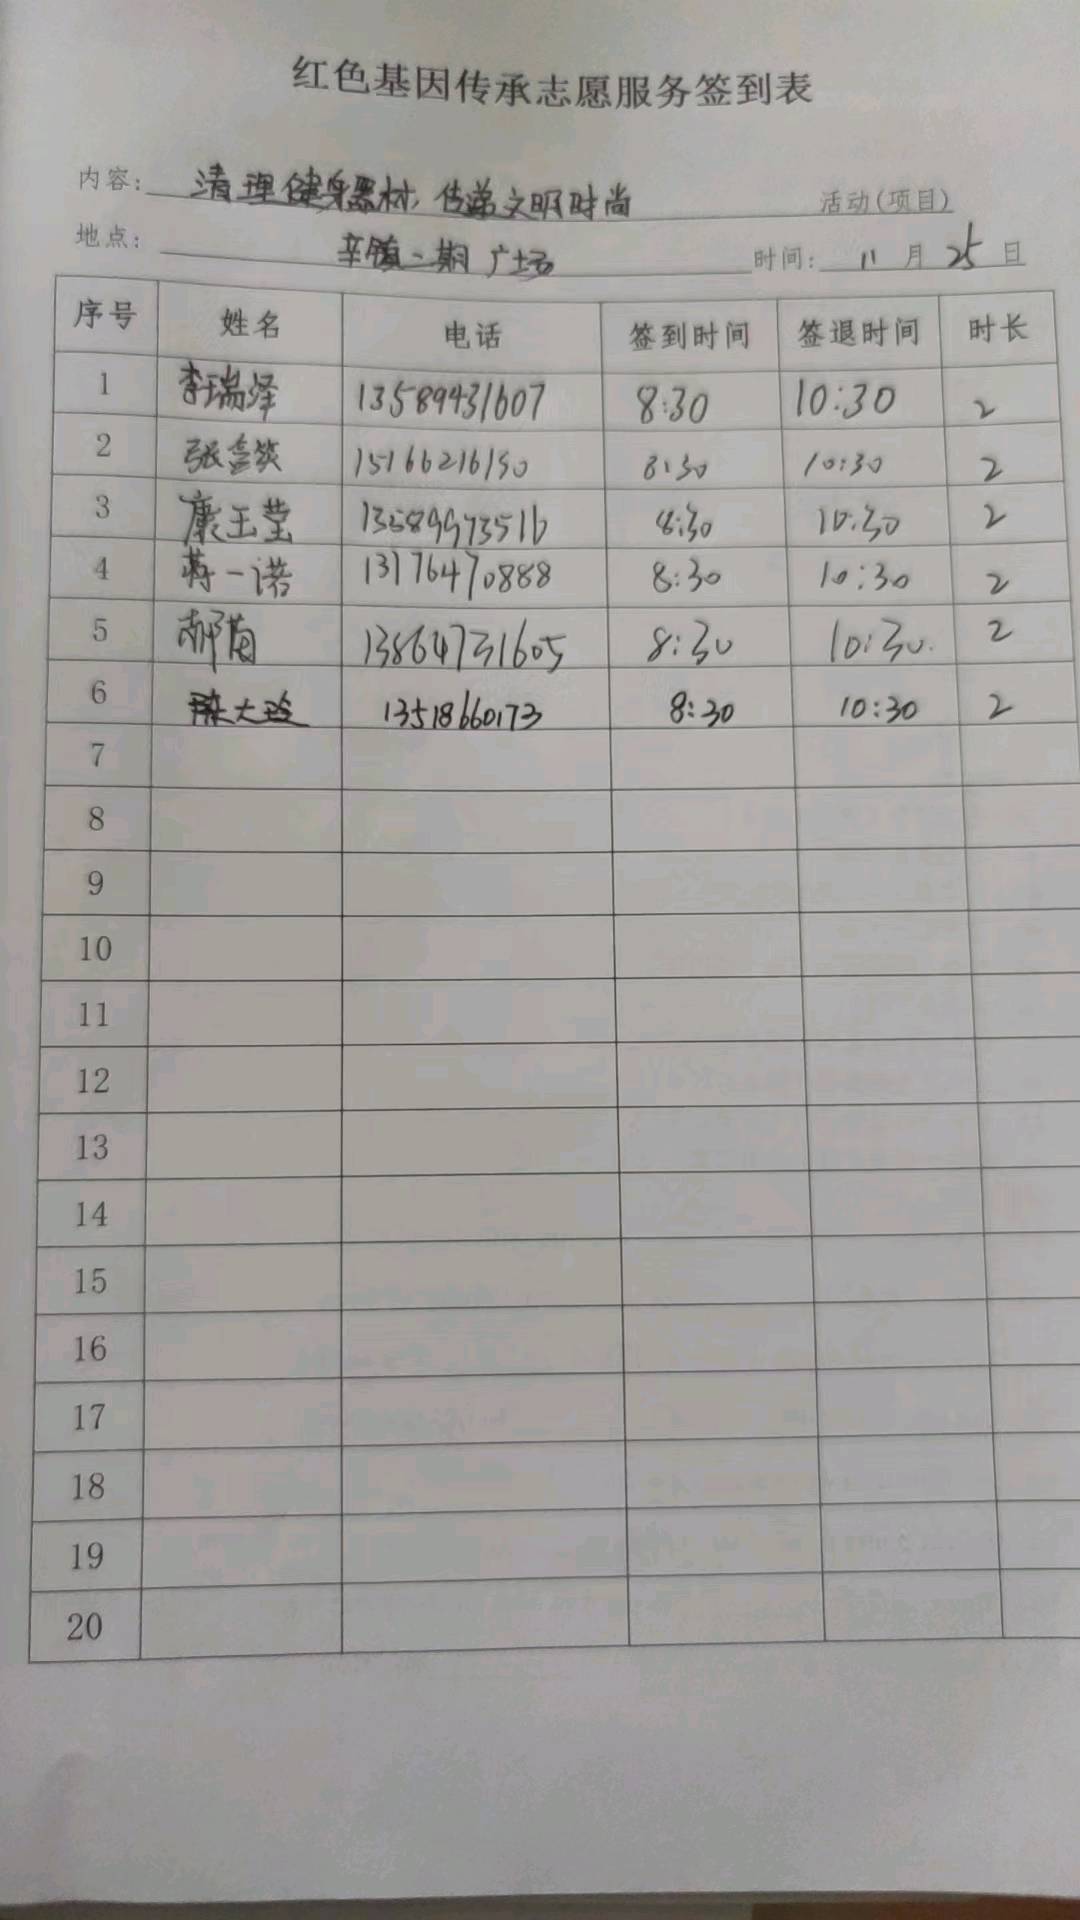 红色基因传承志愿服务签到表
内容: 清理健身器材,传递文明时尚 活动(项目)
地点: 辛镇一期广场 时间: 11月25日
序号 姓名 电话 签到时间 签退时间 时长
1 李瑞泽 13589431607 8:30 10:30 2
2 15166216150 8:30 10:30 2
3 康玉莹 13589973516 8:30 10:30 2
4 蒋一诺 13176470888 8:30 10:30 2
5 郝茵 13864731605 8:30 10:30 2
6 13518660173 8:30 10:30 2
7
8
9
10
11
12
13
14
15
16
17
18
19
20